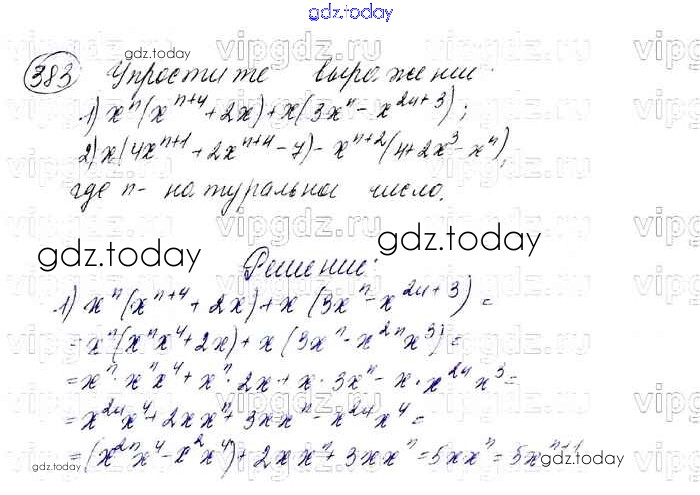 gdz.today
383 Упростите выражение:
1) xⁿ(xⁿ⁺⁴ + 2x) + x(3xⁿ - x²ⁿ⁺³);
2) x(4xⁿ⁺¹ + 2xⁿ⁺⁴ - 7) - xⁿ⁺²(4 + 2x³ - xⁿ),
где n - натуральное число.
gdz.today
Решение:
1) xⁿ(xⁿ⁺⁴ + 2x) + x(3xⁿ - x²ⁿ⁺³) =
= xⁿ(xⁿx⁴ + 2x) + x(3xⁿ - x²ⁿx³) =
= xⁿ · xⁿx⁴ + xⁿ · 2x + x · 3xⁿ - x · x²ⁿx³ =
= x²ⁿx⁴ + 2xxⁿ + 3xxⁿ - x²ⁿx⁴ =
= (x²ⁿx⁴ - x²x⁴) + 2xxⁿ + 3xxⁿ = 5xxⁿ = 5xⁿ⁺¹
gdz.today
vipgdz.ru